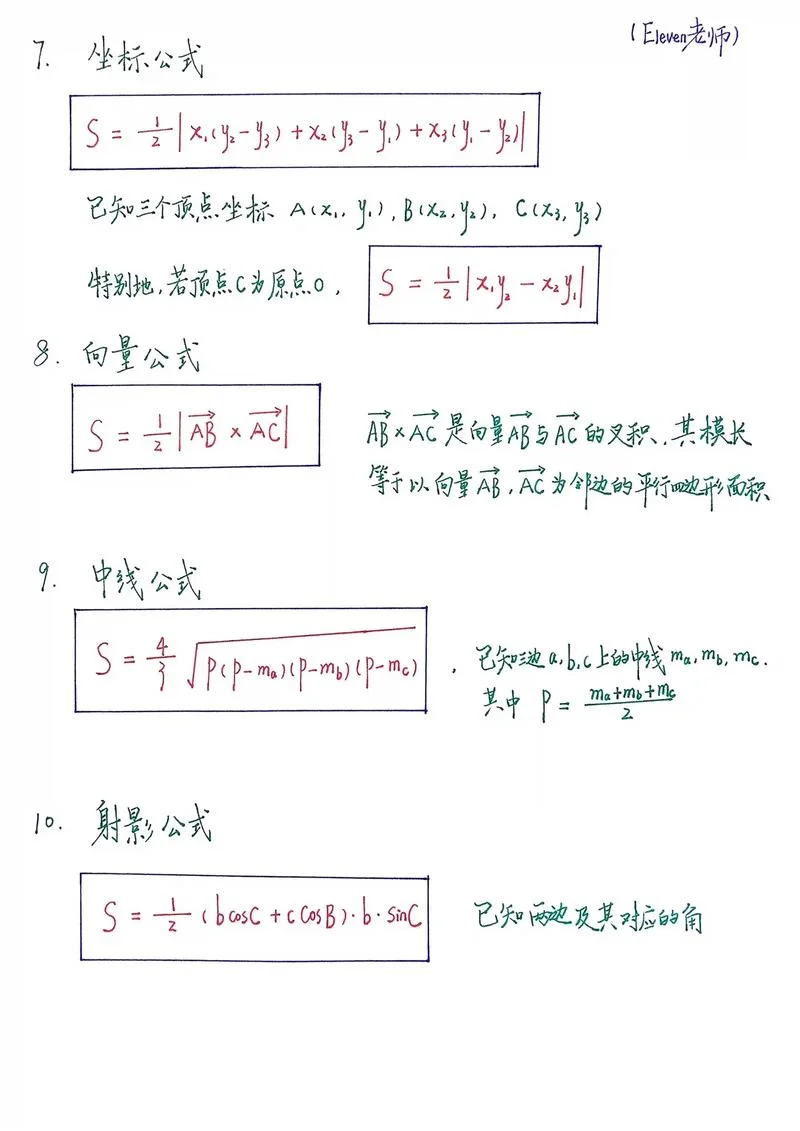 (Eleven老师)
7. 坐标公式
S = 1/2 |x₁(y₂-y₃)+x₂(y₃-y₁)+x₃(y₁-y₂)|
已知三个顶点坐标 A(x₁, y₁), B(x₂, y₂), C(x₃, y₃)
特别地,若顶点C为原点O, S = 1/2 |x₁y₂ - x₂y₁|
8. 向量公式
S = 1/2 |\overrightarrow{AB} × \overrightarrow{AC}|
\overrightarrow{AB} × \overrightarrow{AC} 是向量\overrightarrow{AB}与\overrightarrow{AC}的叉积,其模长
等于以向量\overrightarrow{AB},\overrightarrow{AC}为邻边的平行四边形面积
9. 中线公式
S = 4/3 √(P(P-mₐ)(P-m_b)(P-m_c)) , 已知三边a,b,c上的中线mₐ,m_b,m_c.
其中 P = (mₐ+m_b+m_c)/2
10. 射影公式
S = 1/2 (bcosC + cCosB)·b·sinC 已知两边及其对应的角